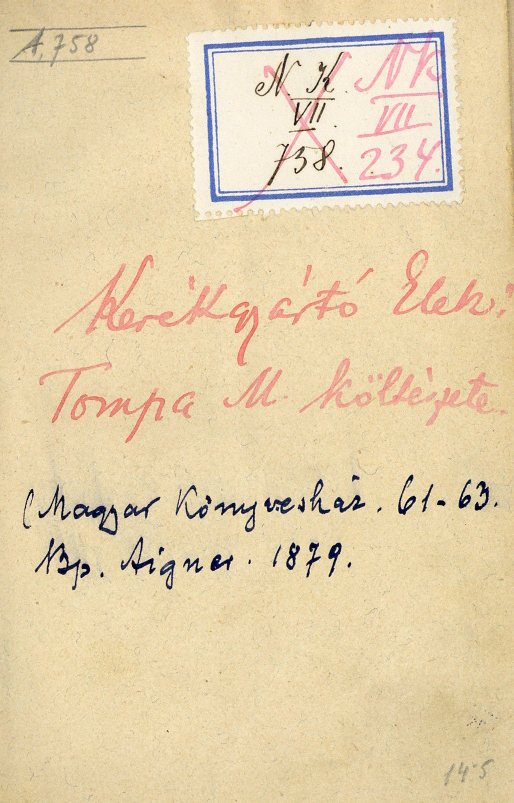 A. 758
N. K.
VII.
758.
NK
VII
234.
Kerékgyártó Elek:
Tompa M. költészete.
(Magyar Könyvesház. 61-63.
Bp. Aigner. 1879.
145